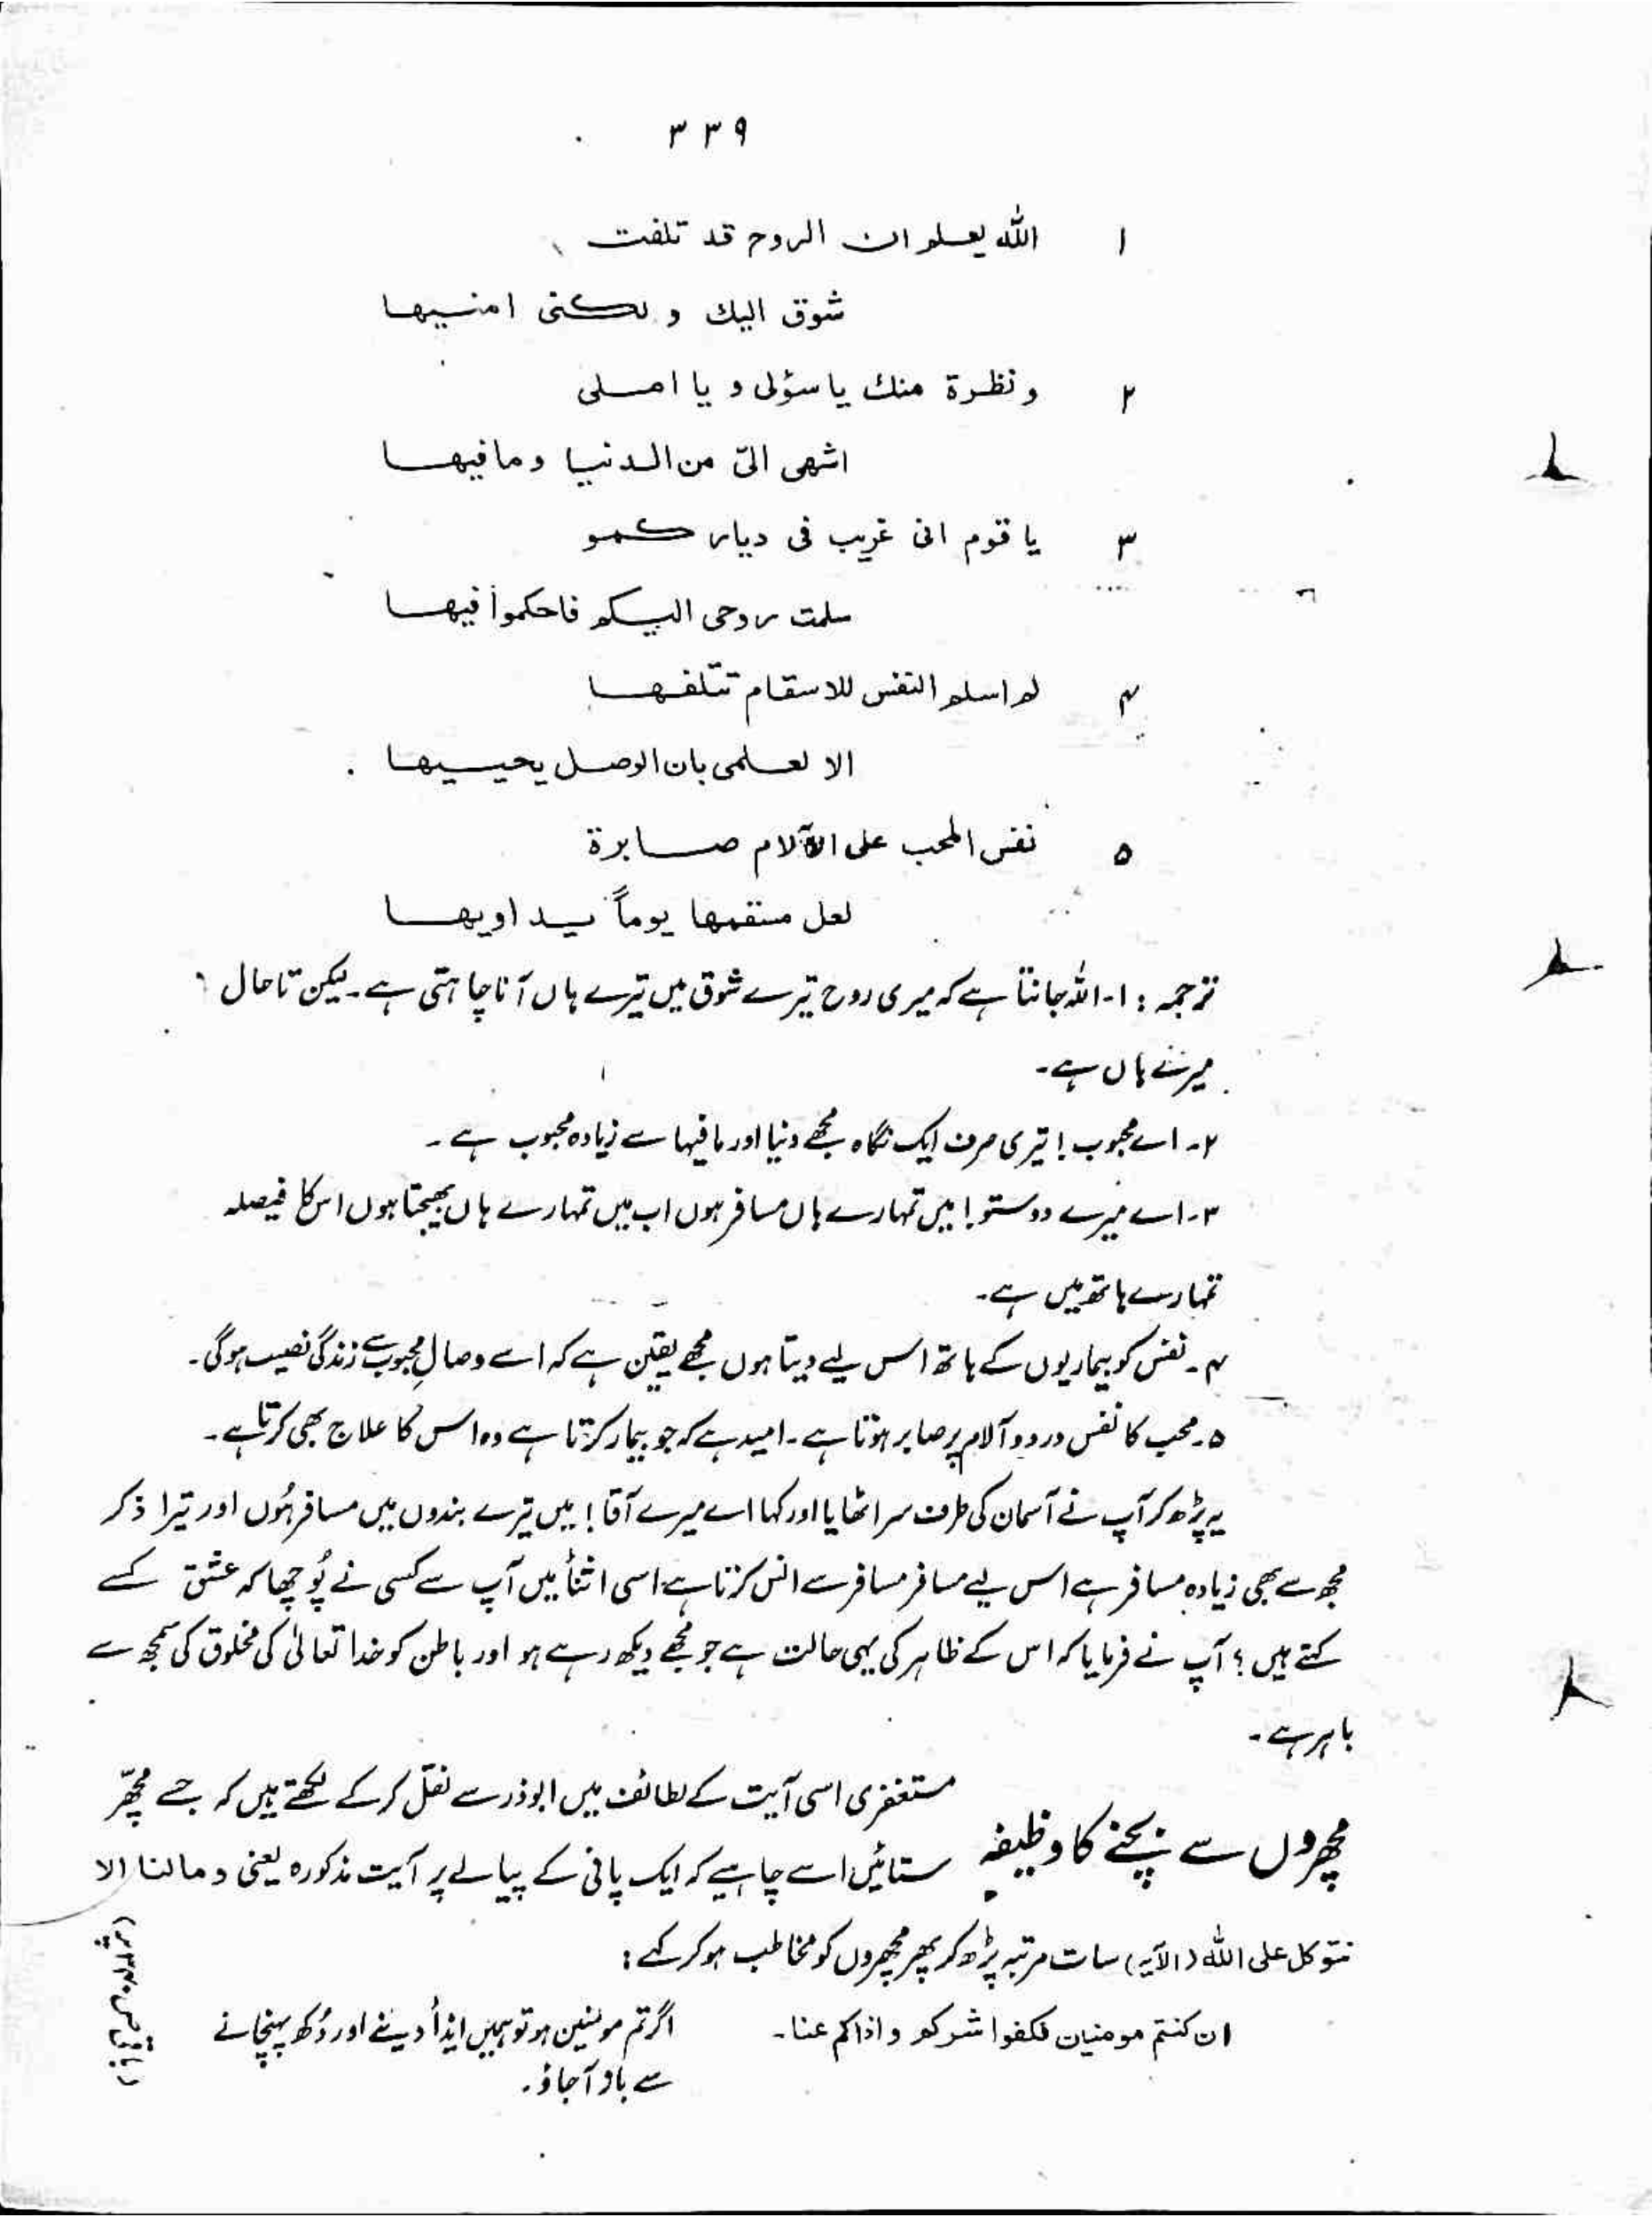 ۳۳۹
۱ الله يعلم ان الروح قد تلفت
شوق اليك و لكنى امنيها
۲ و نظرة منك يا سؤلى و يا املى
اشهى الىّ من الدنيا وما فيها
۳ يا قوم انى غريب فى دياركمو
سلمت روحى اليكم فاحكموا فيها
۴ لم اسلم النفس للاسقام تتلفها
الا لعلمى بان الوصل يحييها
۵ نفس المحب على الآلام صابرة
لعل مسقمها يوماً يداويها
ترجمہ : ۱۔ اللہ جانتا ہے کہ میری روح تیرے شوق میں تیرے ہاں آنا چاہتی ہے۔ لیکن تا حال
میرے ہاں ہے۔
۲۔ اے محبوب ! تیری صرف ایک نگاہ مجھے دنیا اور مافیہا سے زیادہ محبوب ہے ۔
۳۔ اے میرے دوستو ! میں تمہارے ہاں مسافر ہوں اب میں تمہارے ہاں بھیجتا ہوں اس کا فیصلہ
تمہارے ہاتھ میں ہے۔
۴۔ نفس کو بیماریوں کے ہاتھ اس لیے دیتا ہوں مجھے یقین ہے کہ اسے وصالِ محبوب سے زندگی نصیب ہو گی۔
۵۔ محب کا نفس درد و آلام پر صابر ہوتا ہے۔ امید ہے کہ جو بیمار کرتا ہے وہ اس کا علاج بھی کرتا ہے۔
یہ پڑھ کر آپ نے آسمان کی طرف سر اٹھایا اور کہا اے میرے آقا ! میں تیرے بندوں میں مسافر ہُوں اور تیرا ذکر
مجھ سے بھی زیادہ مسافر ہے اس لیے مسافر مسافر سے انس کرتا ہے اسی اثنأ میں آپ سے کسی نے پُوچھا کہ عشق کسے
کہتے ہیں ؟ آپ نے فرمایا کہ اس کے ظاہر کی یہی حالت ہے جو مجھے دیکھ رہے ہو اور باطن کو خدا تعالیٰ کی مخلوق کی سمجھ سے
باہر ہے ۔
مچھروں سے بچنے کا وظیفہ
مستغفری اسی آیت کے لطائف میں ابوذر سے نقل کر کے لکھتے ہیں کہ جسے مچھّر
ستائیں اسے چاہیے کہ ایک پانی کے پیالے پر آیت مذکورہ یعنی و ما لنا الا
نتوکل علی اللہ (الآیہ) سات مرتبہ پڑھ کر پھر مچھروں کو مخاطب ہو کر کہے :
ان کنتم مومنین فکفوا شرکم و اذاکم عنا۔
اگر تم مومنین ہو تو ہمیں ایذأ دینے اور دُکھ پہنچانے
سے باز آجاؤ۔